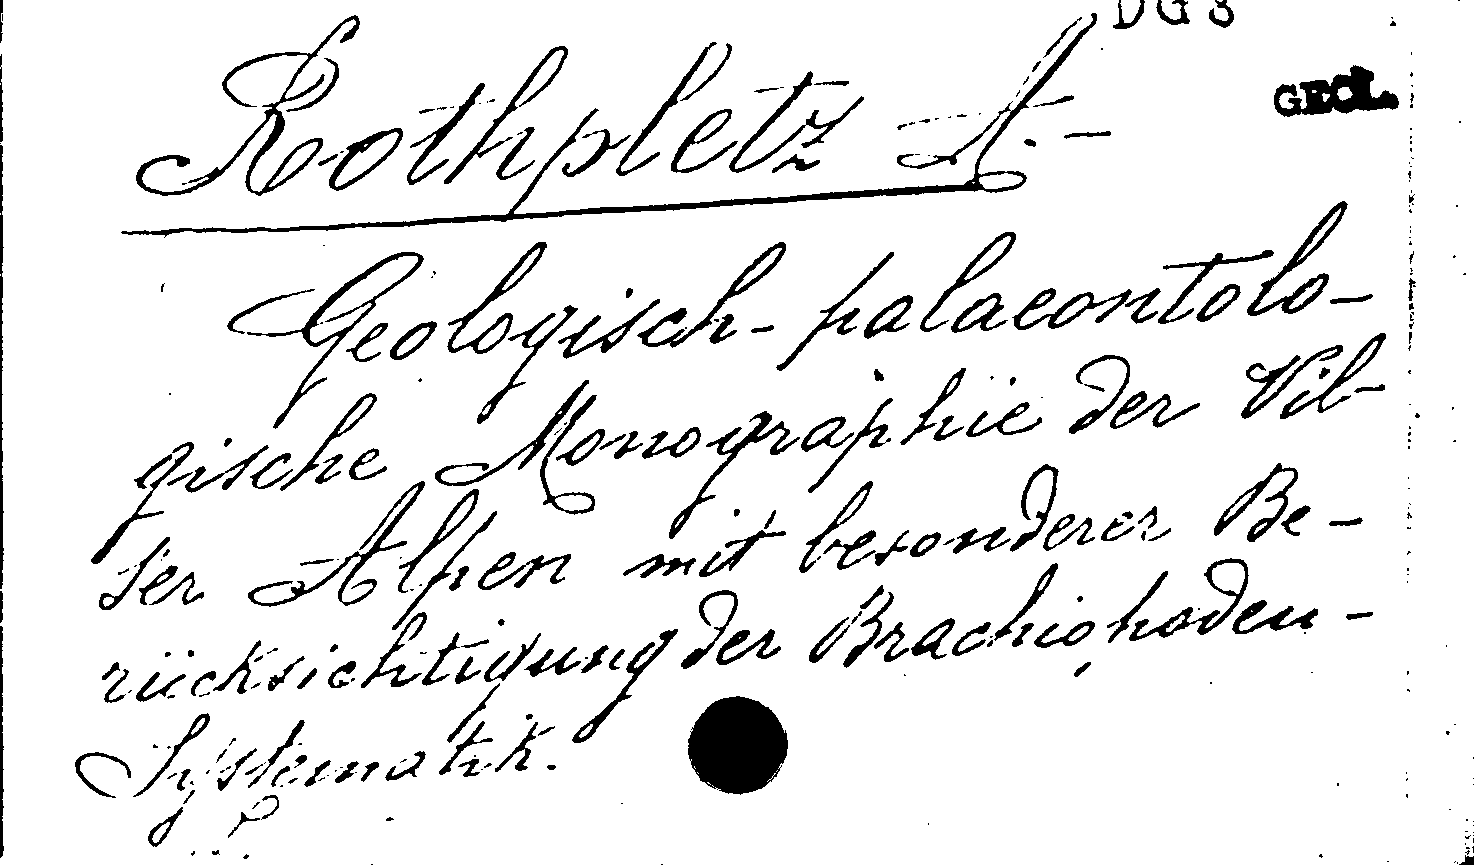 DG8
GEOL.
Rothpletz A. -
Geologisch - palaeontolo-
gische Monographie der Vil-
ser Alpen mit besonderer Be-
rücksichtigung der Brachiopoden -
Systematik.